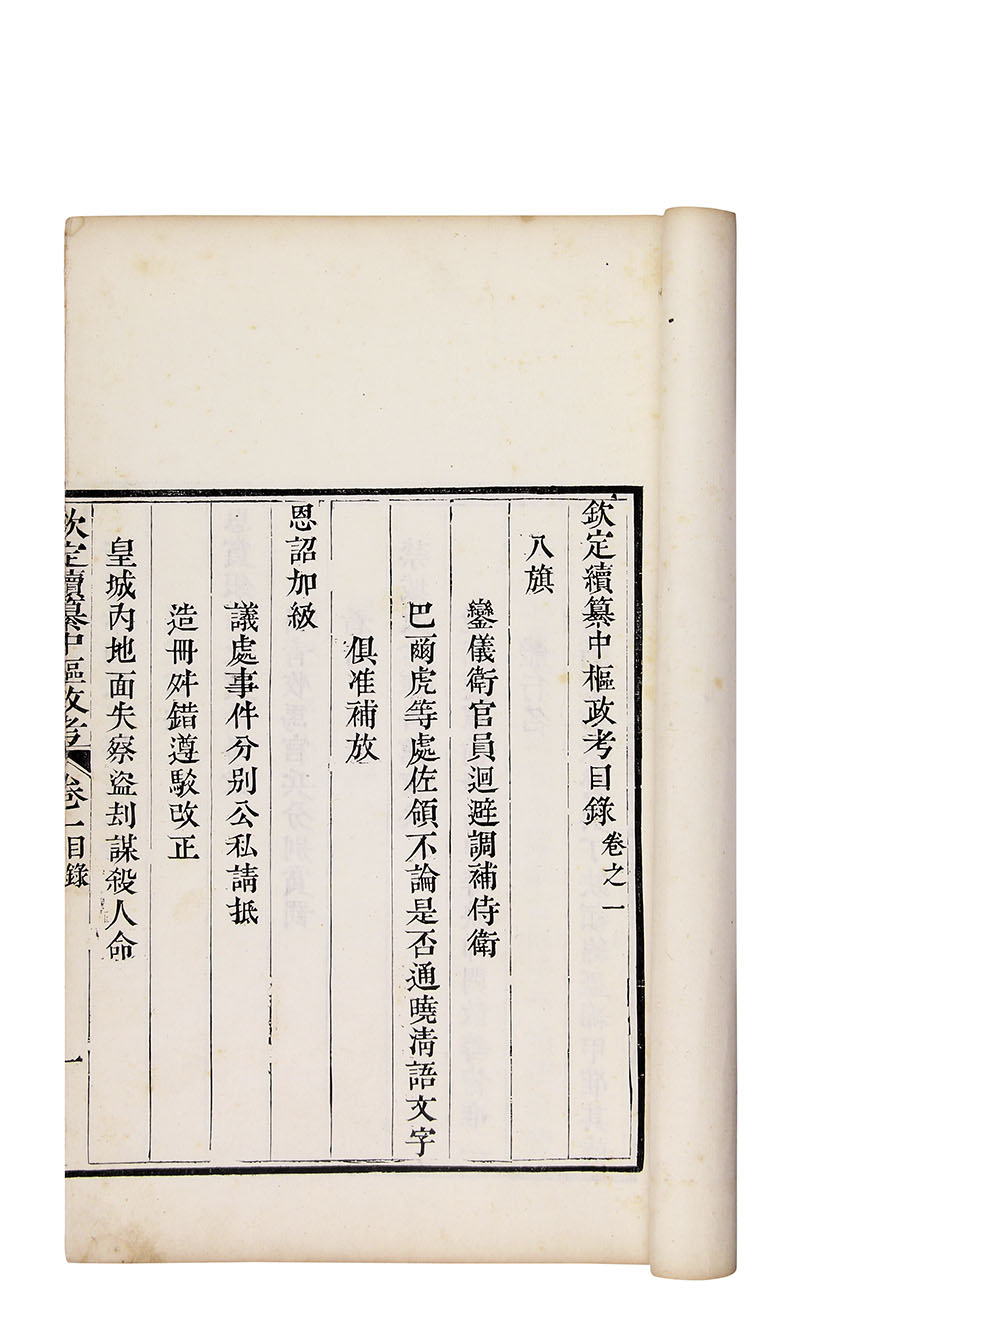 欽定續纂中樞政考目錄 卷之一
八旗
鑾儀衛官員迴避調補侍衛
巴爾虎等處佐領不論是否通曉清語文字
俱准補放
恩詔加級
議處事件分別公私請抵
造冊舛錯遵駁改正
皇城內地面失察盜刦謀殺人命
欽定續纂中樞政考 卷一目錄 一